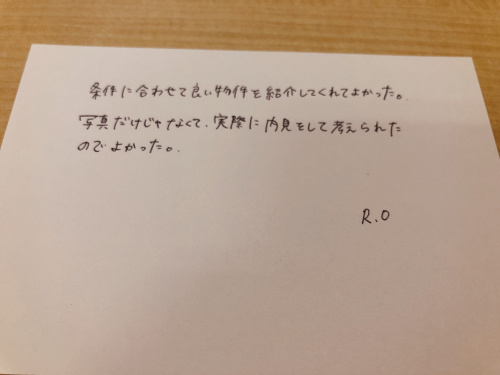 条件に合わせて良い物件を紹介してくれてよかった。
写真だけじゃなくて、実際に内見をして考えられた
のでよかった。
R.O